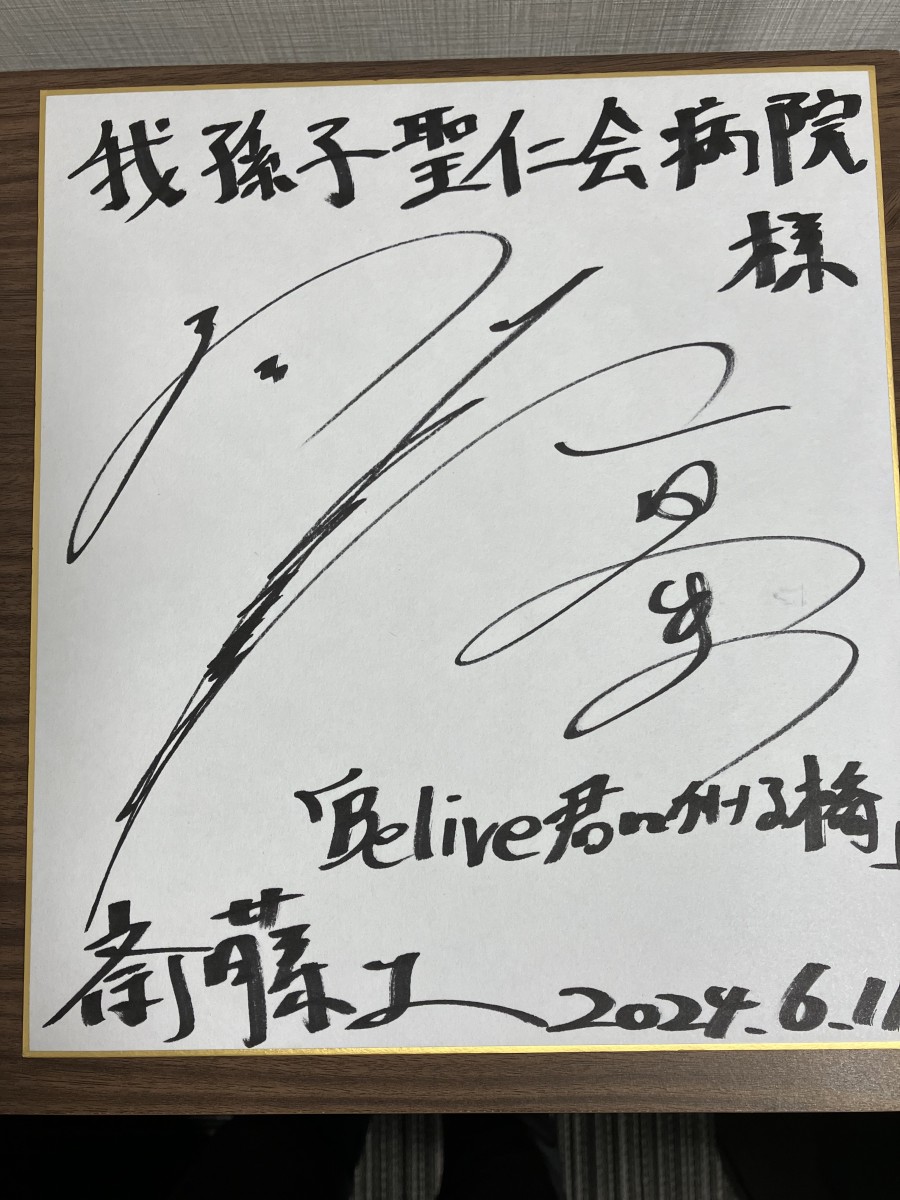 我孫子聖仁会病院
様
「Belive君にかける橋」
斎藤工 2024.6.11